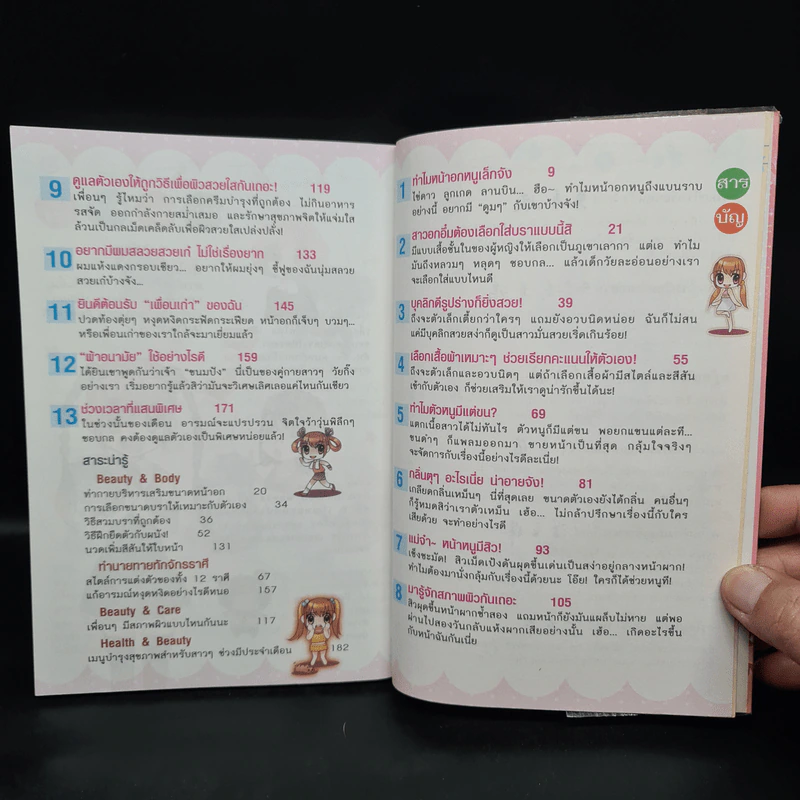 9 ดูแลตัวเองให้ถูกวิธีเพื่อผิวสวยใสกันเถอะ! 119
เพื่อนๆ รู้ไหมว่า การเลือกครีมบำรุงที่ถูกต้อง ไม่กินอาหาร
รสจัด ออกกำลังกายสม่ำเสมอ และรักษาสุขภาพจิตให้แจ่มใส
ล้วนเป็นกลเม็ดเคล็ดลับเพื่อผิวสวยใสเปล่งปลั่ง!
10 อยากมีผมสลวยสวยเก๋ ไม่ใช่เรื่องยาก 133
ผมแห้งแดงกรอบเชียว... อยากให้ผมยุ่งๆ ชี้ฟูของฉันนุ่มสลวย
สวยเก๋บ้างจัง...
11 ยินดีต้อนรับ “เพื่อนเก่า” ของฉัน 145
ปวดท้องตุ่ยๆ หงุดหงิดกระฟัดกระเฟียด หน้าอกก็เจ็บๆ บวมๆ...
หรือเพื่อนเก่าของเราใกล้จะมาเยี่ยมแล้ว
12 “ผ้าอนามัย” ใช้อย่างไรดี 159
ได้ยินเขาพูดกันว่าเจ้า “ขนมปัง” นี่เป็นของคู่กายสาวๆ วัยกิ๊ง
อย่างเรา เริ่มอยากรู้แล้วสิว่ามันจะวิเศษเลิศเลอแค่ไหนกันเชียว
13 ช่วงเวลาที่แสนพิเศษ 171
ในช่วงนั้นของเดือน อารมณ์จะแปรปรวน จิตใจว้าวุ่นพิลึกๆ
ชอบกล คงต้องดูแลตัวเองเป็นพิเศษหน่อยแล้ว!
สาระน่ารู้
Beauty & Body
ทำกายบริหารเสริมขนาดหน้าอก 20
การเลือกขนาดบราให้เหมาะกับตัวเอง 34
วิธีสวมบราที่ถูกต้อง 36
วิธีฝึกยืดตัวกับผนัง! 52
นวดเพิ่มสีสันให้ใบหน้า 131
ทำนายทายทักจักรราศี
สไตล์การแต่งตัวของทั้ง 12 ราศี 67
แก้อารมณ์หงุดหงิดอย่างไรดีหนอ 157
Beauty & Care
เพื่อนๆ มีสภาพผิวแบบไหนกันนะ 117
Health & Beauty
เมนูบำรุงสุขภาพสำหรับสาวๆ ช่วงมีประจำเดือน 182
สาร
บัญ
1 ทำไมหน้าอกหนูเล็กจัง 9
ไข่ดาว ลูกเกด ลานบิน... ฮือ~ ทำไมหน้าอกหนูถึงแบนราบ
อย่างนี้ อยากมี “ตูมๆ” กับเขาบ้างจัง!
2 สาวอกอึ๋มต้องเลือกใส่บราแบบนี้สิ 21
มีแบบเสื้อชั้นในของผู้หญิงให้เลือกเป็นภูเขาเลากา แต่เอ ทำไม
มันถึงหลวมๆ หลุดๆ ชอบกล... แล้วเด็กวัยละอ่อนอย่างเรา
จะเลือกใส่แบบไหนดี
3 บุคลิกดีรูปร่างก็ยิ่งสวย! 39
ถึงจะตัวเล็กเตี้ยกว่าใครๆ แถมยังอวบนิดหน่อย ฉันก็ไม่สน
แค่มีบุคลิกสวยสง่าก็ดูเป็นสาวมั่นสวยเริ่ดเกินร้อย!
4 เลือกเสื้อผ้าเหมาะๆ ช่วยเรียกคะแนนให้ตัวเอง! 55
ถึงจะตัวเล็กและอวบนิดๆ แต่ถ้าเลือกเสื้อผ้ามีสไตล์และสีสัน
เข้ากับตัวเอง ก็ช่วยเสริมให้เราดูน่ารักขึ้นได้นะ!
5 ทำไมตัวหนูมีแต่ขน? 69
แตกเนื้อสาวได้ไม่ทันไร ตัวหนูก็มีแต่ขน พอยกแขนแต่ละที...
ขนดำๆ ก็แพลมออกมา ขายหน้าเป็นที่สุด กลุ้มใจจริงๆ
จะจัดการกับเรื่องนี้อย่างไรดีละเนี่ย!
6 กลิ่นตุๆ อะไรเนี่ย น่าอายจัง! 81
เกลียดกลิ่นเหม็นๆ นี่ที่สุดเลย ขนาดตัวเองยังได้กลิ่น คนอื่นๆ
ก็รู้หมดสิว่าเราตัวเหม็น เฮ้อ... ไม่กล้าปรึกษาเรื่องนี้กับใคร
เสียด้วย จะทำอย่างไรดี
7 แม่จ๋า~ หน้าหนูมีสิว! 93
เซ็งชะมัด! สิวเม็ดเป้งดันผุดขึ้นเด่นเป็นสง่าอยู่กลางหน้าผาก!
ทำไมต้องมานั่งกลุ้มกับเรื่องนี้ด้วยนะ โอ๊ย! ใครก็ได้ช่วยหนูที!
8 มารู้จักสภาพผิวกันเถอะ 105
สิวผุดขึ้นหน้าผากซ้ำสอง แถมหน้าก็ยังมันแผล็บไม่หาย แต่พอ
ผ่านไปสองวันกลับแห้งผากเสียอย่างนั้น เฮ้อ... เกิดอะไรขึ้น
กับหน้าฉันกันเนี่ย